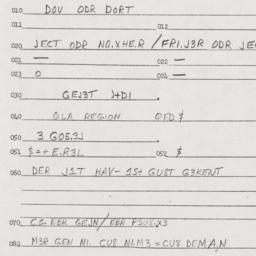 010 DOV ODR DORT
011 012
020 JECT ODR NO.XHE.R /FRI.J3R ODR JEC
021 — 022 —
023 O 024 —
030 GEJ3T
040 OLA REGION OFD $
050 3 GOE3J
051 $=+E.R3L 052 $
060 DER J1T HAV- 1S+ GU8T G3KENT
070 C1 EBR GEJN/EBR
080 M3R GEN N1. CU8 N1.M3 =CU8 DEMA,N